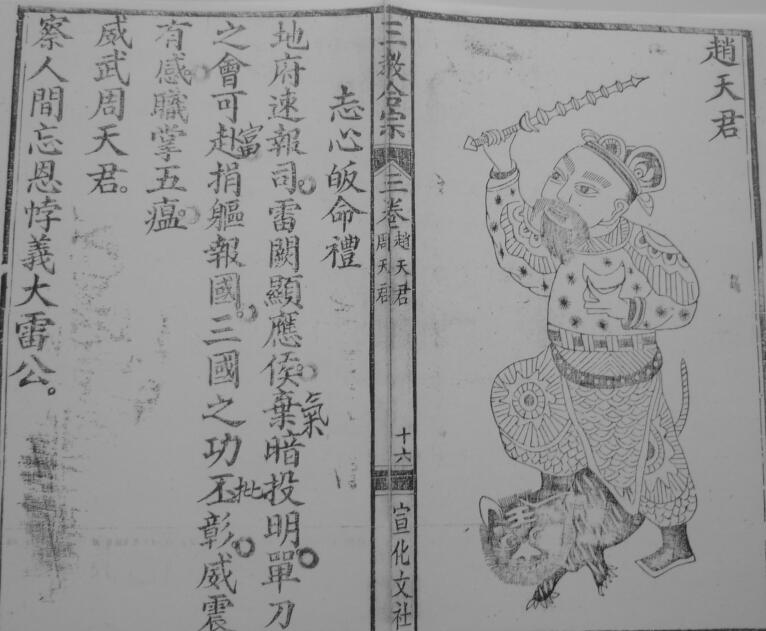 趙天君
三教合宗
三卷
趙天君
周天君
十六
宣化文社
志心皈命禮
地府速報司。雷闕顯應侯。棄暗投明。單刀
氣
之會可赴捐軀報國。三國之功丕彰。威震
富
批
有感。職掌五瘟。
威武周天君。
察人間忘恩悖義大雷公。